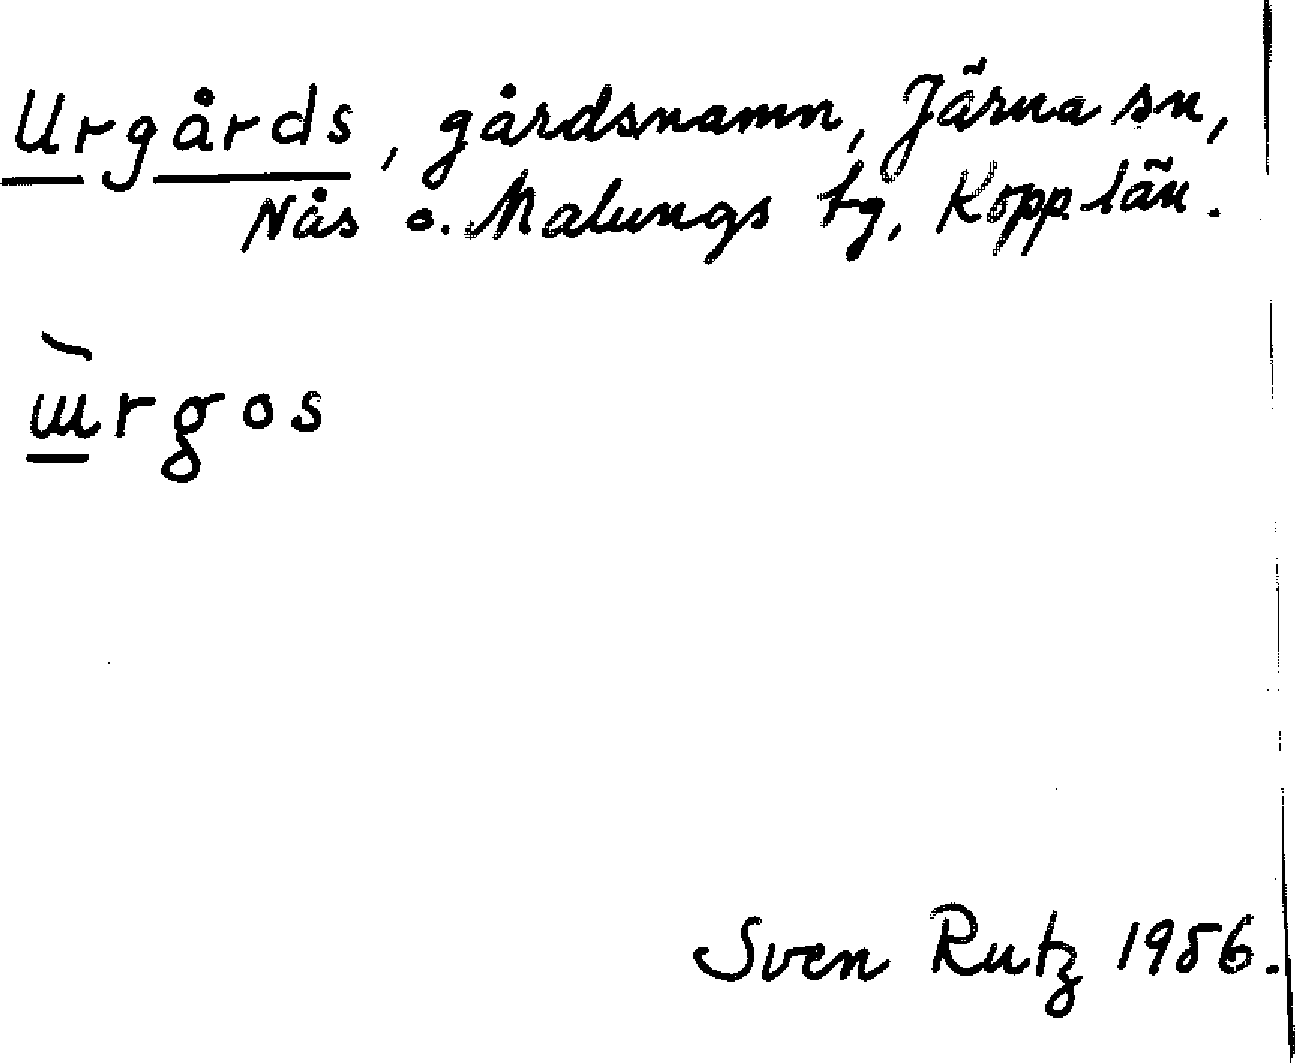 Urgårds, gårdsnamn, Järna sn,
Nås o. Malungs tg, Kopp. län.
ɯ̀rgos
Sven Rutz 1956.